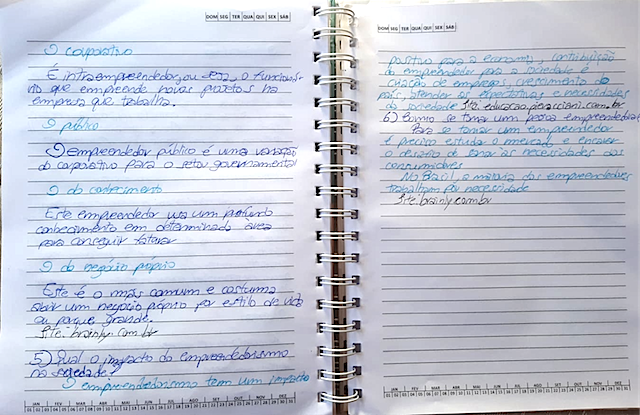 DOM SEG TER QUA QUI SEX SÁB
O corporativo
É intraempreendedor, ou seja, o funcioná-
rio que empreende novos projetos na
empresa que trabalha.
O público
O empreendedor público é uma variação
do corporativo para o setor governamental
O do conhecimento
Este empreendedor usa um profundo
conhecimento em determinada área
para conseguir faturar
O do negócio próprio
Este é o mais comum e costuma
abrir um negócio próprio por estilo de vida
ou porque grande.
Site: brainly.com.br
5) Qual o impacto do empreendedorismo
na sociedade?
O empreendedorismo tem um impacto
JAN FEV MAR ABR MAI JUN JUL AGO SET OUT NOV DEZ
DOM SEG TER QUA QUI SEX SÁB
positivo para a economia, contribuição
do empreendedor para a sociedade é
criação de empregos, crescimento do
país, atender as expectativas e necessidades
da sociedade Site: educacao.peracciani.com.br
6) Como se tornar um pessoa empreendedora?
Para se tornar um empreendedor
é preciso estudar o mercado e encarar
o desafio de sanar as necessidades dos
consumidores
No Brasil, a maioria dos empreendedores
trabalham por necessidade
Site: brainly.com.br
JAN FEV MAR ABR MAI JUN JUL AGO SET OUT NOV DEZ